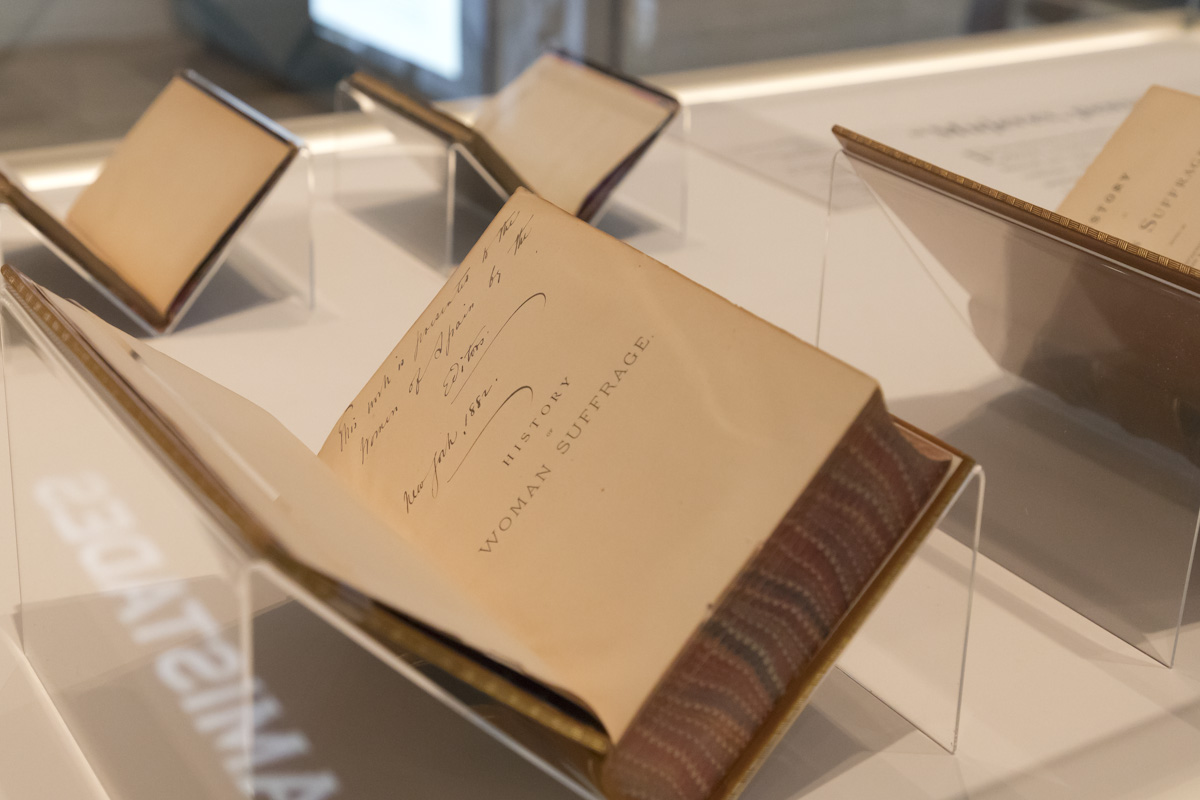 This work is presented to the
Women of Spain by the
Editors.
New York, 1882.
HISTORY
OF
WOMAN SUFFRAGE.
HISTORY
SUFFRAGE
AMISTADES